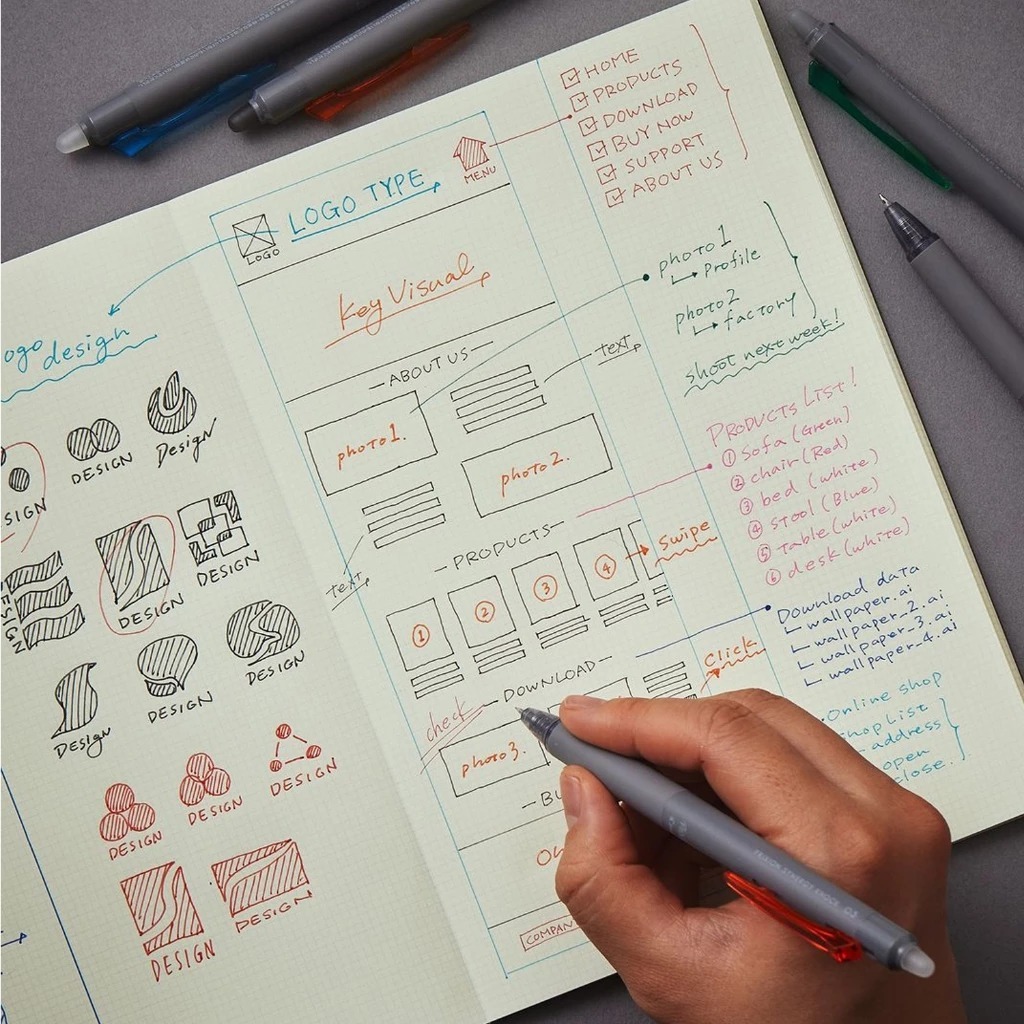 LOGO TYPE
LOGO
MENU
Key Visual
ABOUT US
photo 1.
photo 2.
text
text
PRODUCTS
①
②
③
④
Swipe
DOWNLOAD
Click
check
photo 3.
HOME
PRODUCTS
DOWNLOAD
BUY NOW
SUPPORT
ABOUT US
photo 1
Profile
photo 2
factory
shoot next week!
PRODUCTS LIST!
① Sofa (Green)
② chair (Red)
③ bed (white)
④ stool (Blue)
⑤ table (white)
⑥ desk (white)
Download data
wallpaper.ai
wallpaper_2.ai
wallpaper_3.ai
wallpaper_4.ai
Online shop
shop List
address
open
close.
design
DESIGN
Design
DESIGN
DESIGN
DESIGN
Design
DESIGN
DESIGN
DESIGN
DESIGN
DESIGN
DESIGN
DESIGN